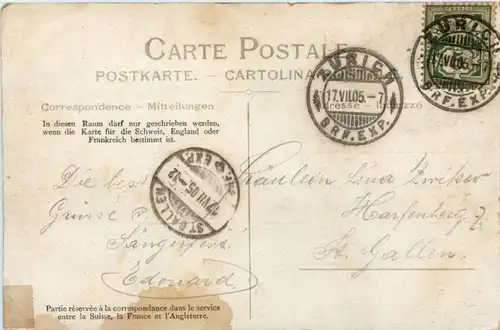 CARTE POSTALE
POSTKARTE. — CARTOLINA
ZÜRICH
17.VII.05.–7
BRF. EXP.
ZÜRICH
17.VII.05.
BRF. EXP.
FRANCO
Correspondence - Mitteilungen
Adresse - Indirizzo
In diesen Raum darf nur geschrieben werden,
wenn die Karte für die Schweiz, England oder
Frankreich bestimmt ist.
ST. GALLEN
17.VII.05.–12
BRF. EXP.
Die best
Grüsse v.
Sängerfest
Edouard
Fräulein Lina Zwiker
Harfenberg 7.
St. Gallen
Partie réservée à la correspondance dans le service
entre la Suisse, la France et l'Angleterre.